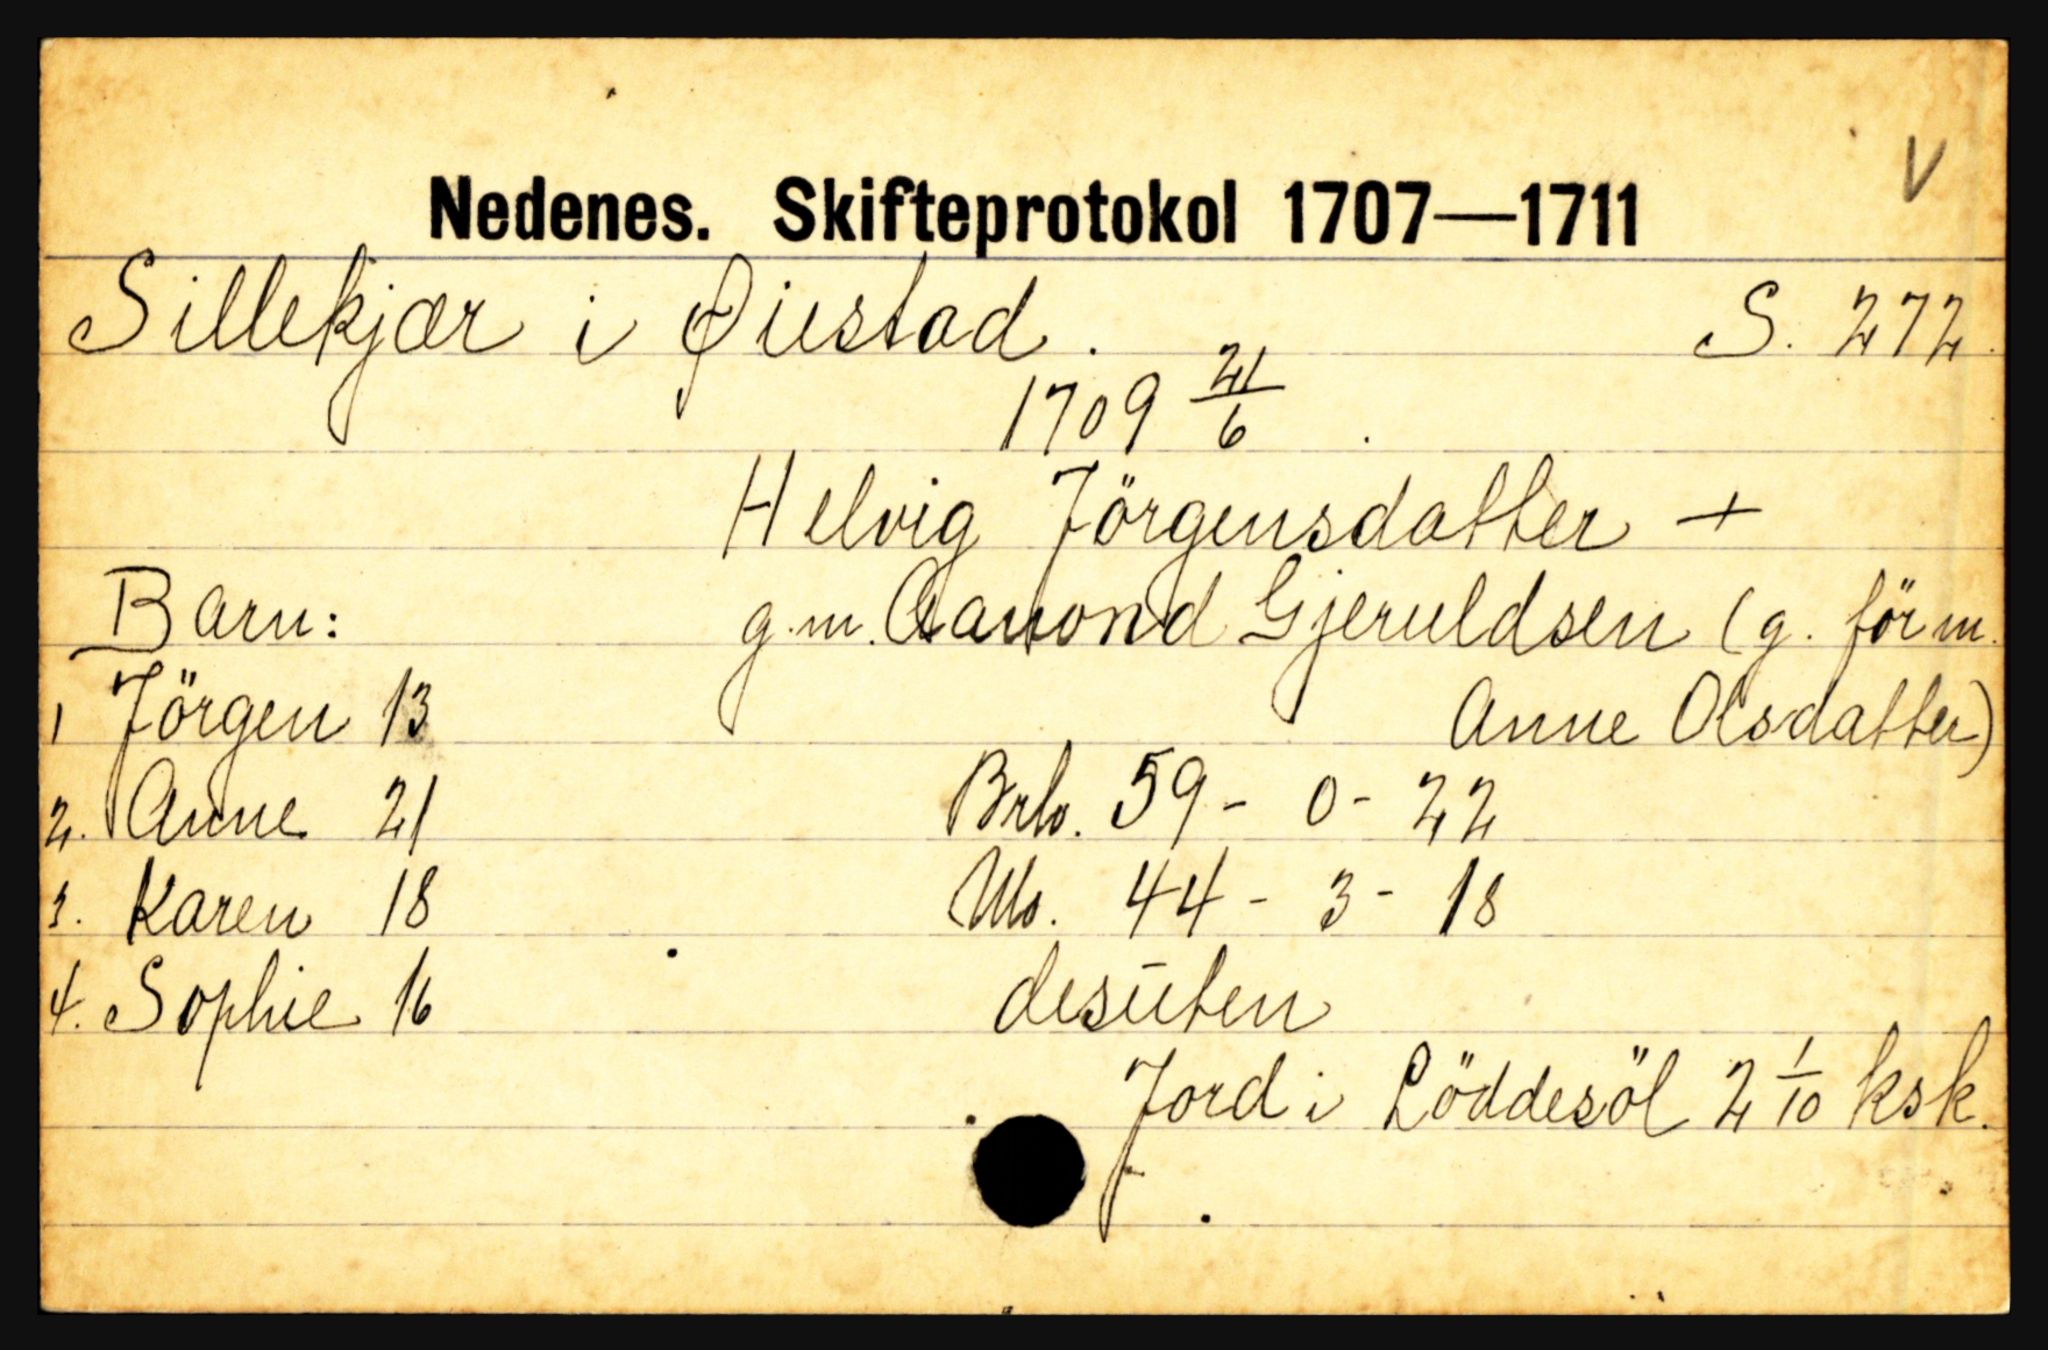 V
Nedenes. Skifteprotokol 1707—1711
Sillekjær i Øiestad. S. 272.
1709 21/6.
Helvig Jörgensdatter +
Barn: g.m. Aamond Gjeruldsen (g. för m.
1 Jörgen 13 Anne Olsdatter)
2. Anne 21 Brlo. 59 - 0 - 22
3. Karen 18 Ulo. 44 - 3 - 18
4. Sophie 16 desūten
Jord i Löddesöl 2 1/10 ksk.